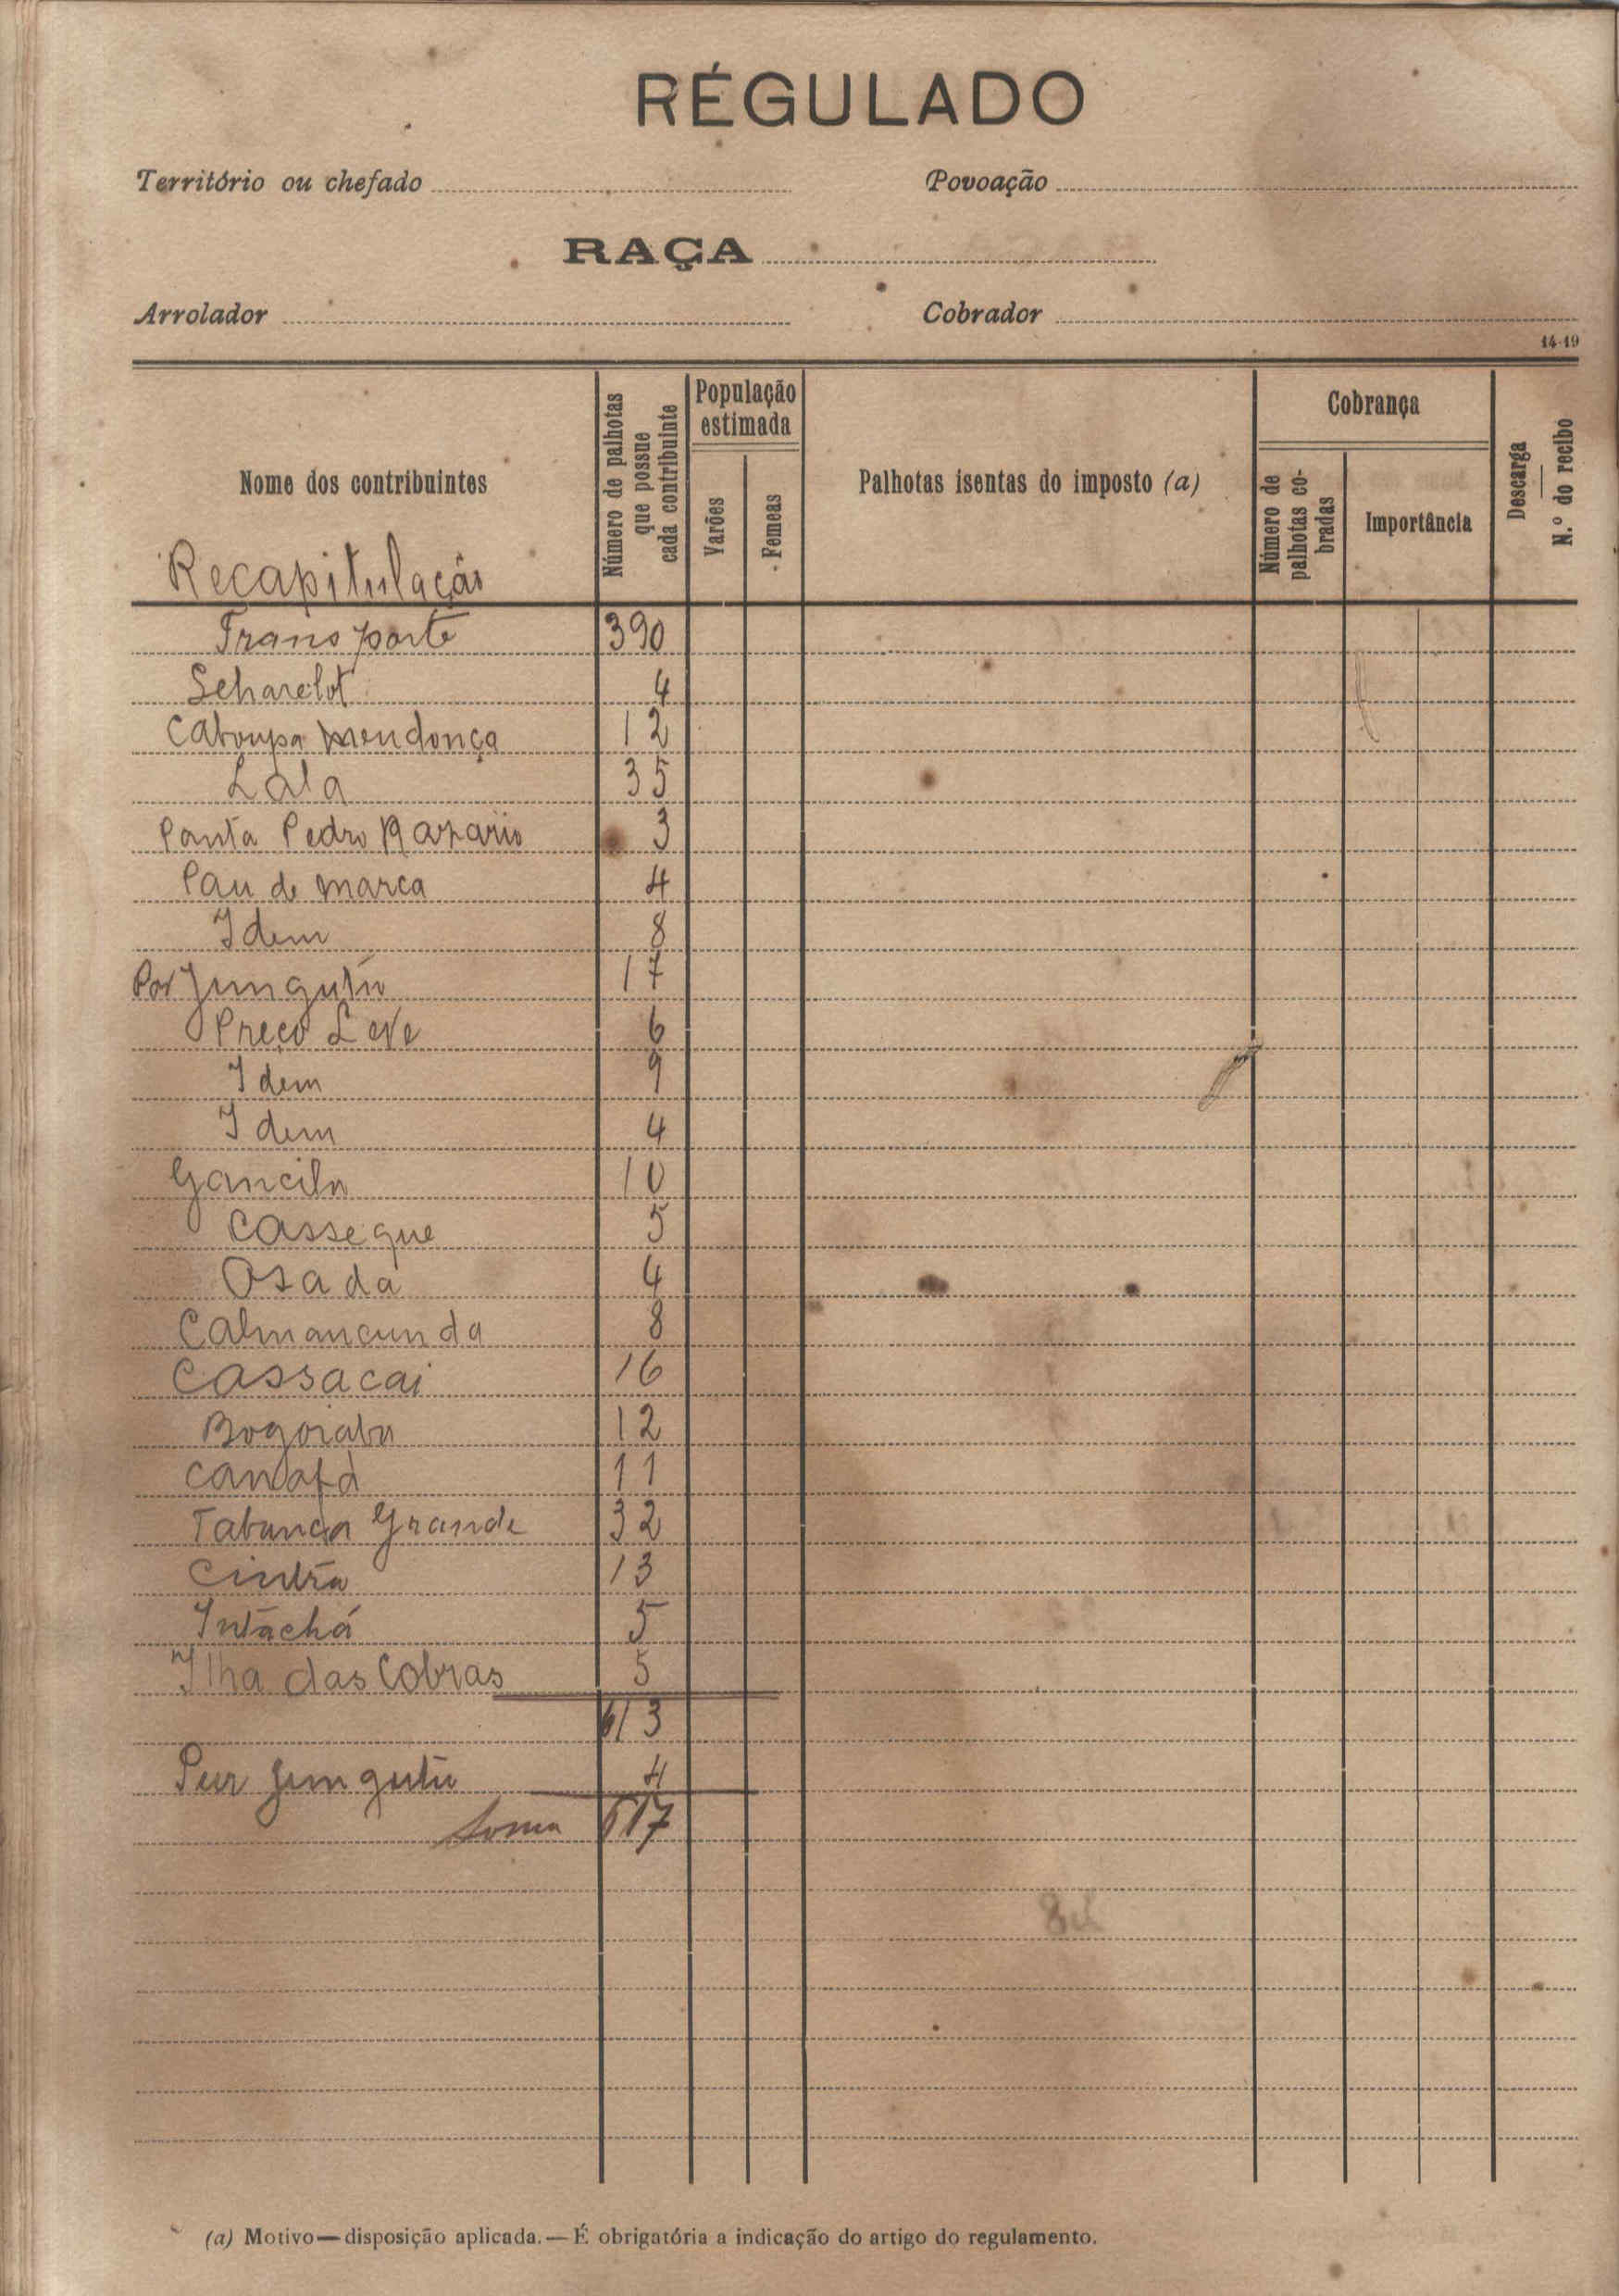 RÉGULADO
Território ou chefado
Povoação
RAÇA
Arrolador
Cobrador
14-19
Nome dos contribuintes
Número de palhotas que possue cada contribuinte
População estimada
Varões
Femeas
Palhotas isentas do imposto (a)
Cobrança
Número de palhotas cobradas
Importância
Descarga
N.º do recibo
Recapitulação
Transporte 390
4
Mendonça 12
Lala 35
Ponta Pedro 3
Pau de marca 4
Idem 8
Por Jungutú 17
Preço Leve 6
Idem 9
Idem 4
Gancila 10
Casseque 5
Osada 4
Calmancunda 8
Cassacai 16
12
Canafá 11
Tabanca Grande 32
Cintra 13
Intachá 5
Ilha das Cobras 5
613
4
Soma 617
(a) Motivo—disposição aplicada.—É obrigatória a indicação do artigo do regulamento.